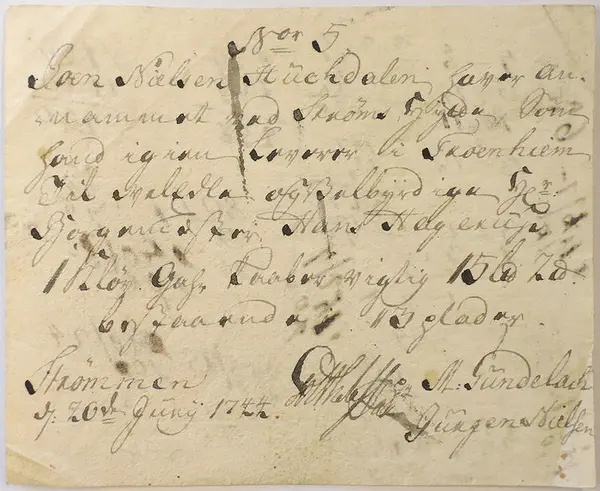 Nor 5
Joen Nielsen Huchdalen, haver an-
nammet ved Strøms Hytte Som
hand igien Leverer i Troenhiem
Til velEdle og Velbyrdige Hr:
Borgemester Hans Hagerup
1 Kløv Gahr Kaaber vigtig 15 Ld 2d
bestaaende i 13 plader.
Strømmen
d: 20de Junij 1744.
St: Gundelach
Jurgen Nielsen